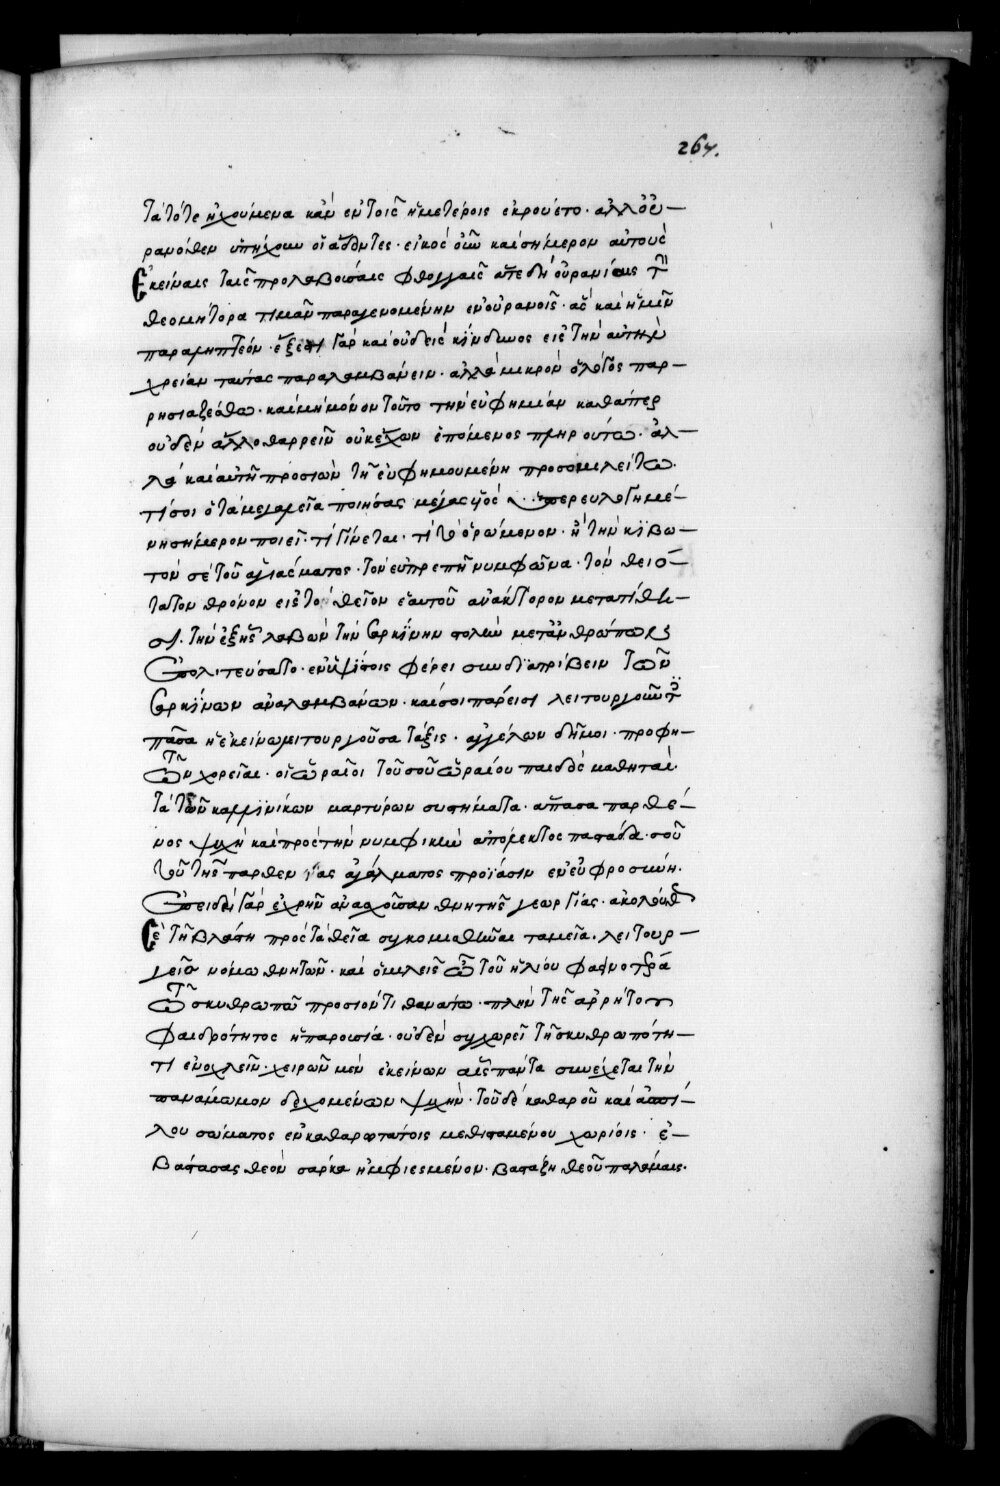 267.
τὰ τότε ἠχούμενα κἀν ἐν τοῖς ἡμετέροις ἐκρούετο. ἀλλ' οὐ-
ρανόθεν ὑπήχουν οἱ ᾄδοντες. εἰκὸς οὖν καὶ σήμερον αὐτοὺς
ἐκείναις ταῖς προλαβούσαις φθογγαῖς ἅτε δὴ οὐρανίαις τὴν
θεομήτορα τιμᾶν παραγενομένην ἐν οὐρανοῖς. ἃς καὶ ἡμῖν
παραληπτέον. ἔξεστι γὰρ καὶ οὐδεὶς κίνδυνος εἰς τὴν αὐτὴν
χρείαν ταύτας παραλαμβάνειν. ἀλλὰ μικρὸν ὁ λόγος παρ-
ρησιαζέσθω. καὶ μὴ μόνον τοῦτο τὴν εὐφημίαν καθάπερ
οὐδὲν ἄλλο θαρρεῖν οὐκ ἔχων ἑπόμενος πληρούτω. ἀλ-
λὰ καὶ αὐτῇ προσιὼν τῇ εὐφημουμένῃ προσομιλείτω.
τί σοι ὁ τὰ μεγαλεῖα ποιήσας μέγας υἱός ὑπερευλογημέ-
νη σήμερον ποιεῖ. τί γίνεται. τί τὸ ὁρώμενον. ἢ τὴν κιβω-
τὸν σὲ τοῦ ἁγιάσματος. τὸν εὐπρεπῆ νυμφῶνα. τὸν θειό-
τατον θρόνον εἰς τὸ θεῖον ἑαυτοῦ ἀνάκτορον μετατίθη-
σι. τὴν ἐξ ἧς λαβὼν τὴν σαρκίνην στολὴν μετ' ἀνθρώποις
ἐπολιτεύσατο. ἐν ὑψίστοις φέρει συνδιατρίβειν τῶν
σαρκίνων ἀναλαμβάνων. καί σοι πάρεισι λειτουργοῦντες
πᾶσα ἡ ἐκείνῳ λειτουργοῦσα τάξις. ἀγγέλων δῆμοι. προφη-
τῶν χορεῖαι. οἱ ὡραῖοι τοῦ σοῦ ὡραίου παιδὸς μαθηταί.
τὰ τῶν καλλινίκων μαρτύρων συστήματα. ἅπασα παρθέ-
νος ψυχὴ καὶ πρὸς τὴν νυμφικὴν ἀπόλεκτος παστάδα. σοῦ
τοῦ τῆς παρθενίας ἀγάλματος προϊᾶσιν ἐν εὐφροσύνῃ.
ἐπειδὴ γὰρ ἐχρῆν ἀνασχοῦσαν θνητῆς γεωργίας. ἀκολούθως
τῇ βλάστῃ πρὸς τὰ θεῖα συγκομισθῆναι ταμεῖα. λειτουρ-
γεῖς νόμῳ θνητῶν. καὶ ὁμιλεῖς τῷ τοῦ ἡλίου φαινοτέρα
τῷ σκυθρωπῶ προσιόντι θανάτω. πλὴν τῆς ἀρρήτου
φαιδρότητος ἡ παρουσία. οὐδὲν συγχωρεῖ τῇ σκυθρωπότη-
τι ἐνοχλεῖν. χειρῶν μὲν ἐκείνων αἷς πάντα συνέχεται τὴν
πανάμωμον δεχομένων ψυχήν. τοῦ δὲ καθαροῦ καὶ ἀσπί-
λου σώματος ἐν καθαρωτάτοις μεθισταμένου χωρίοις. ἐ-
βάστασας θεὸν σάρκα ἠμφιεσμένον. βαστάζῃ θεοῦ παλάμαις.